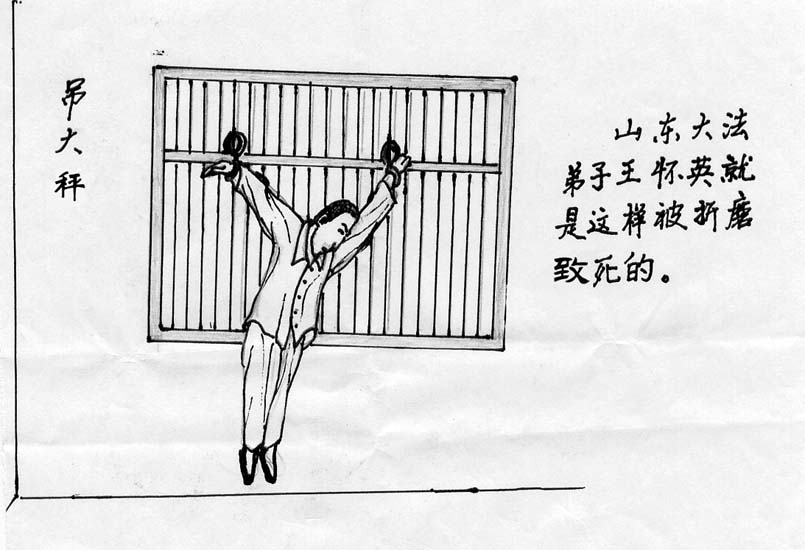 吊大秤
山东大法
弟子王怀英就
是这样被折磨
致死的。